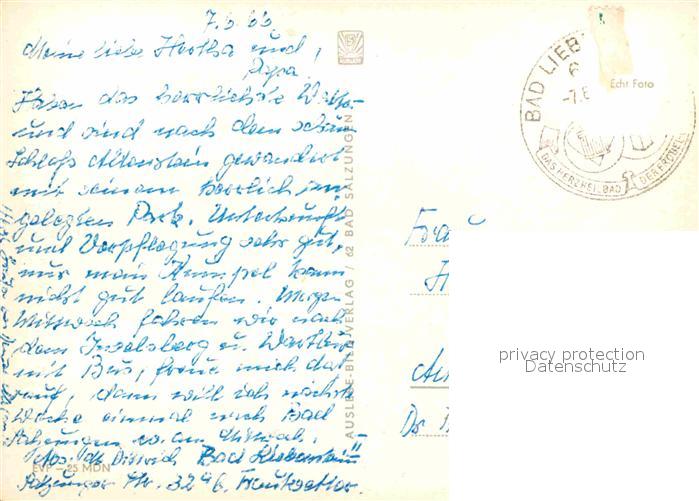 7.6.66
Meine liebe Hertha und
Papa.
Haben das herrlichste Wetter
und sind nach dem schönen
Schloß Altenstein gewandert
mit seinem herrlich an-
gelegten Park. Unterkunft
und Verpflegung sehr gut,
nur mein Humpel kann
nicht gut laufen. Morgen
Mittwoch fahren wir nach
dem Inselsberg u. Wartburg
mit Bus, freue mich dar
auf, dann will ich nächste
Woche einmal nach Bad
am Mittwoch.
Dittrich Bad Liebenstein
EVP -25 MDN
AUSLESE-BILD-VERLAG / 62 BAD SALZUNGEN
BAD LIEB
6
-7.6
Echt Foto
DAS HERZHEILBAD
DER FRÖBEL
Frau
H
Dr
privacy protection
Datenschutz